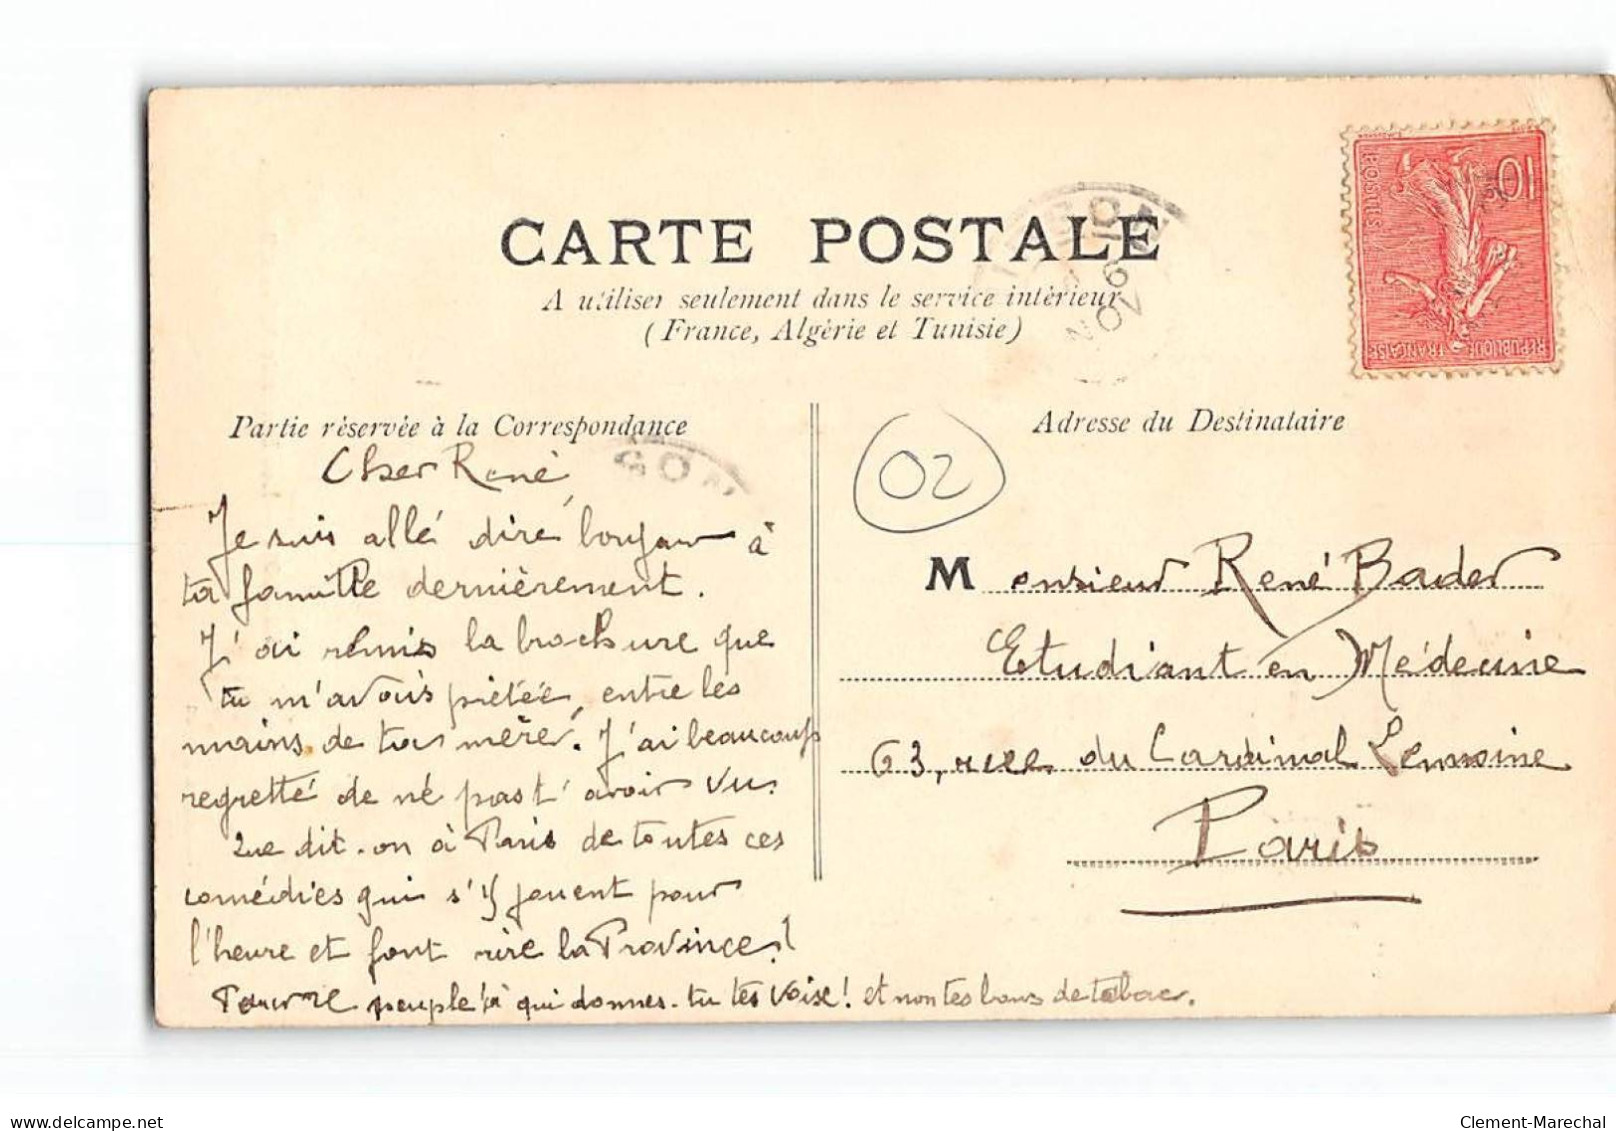 CARTE POSTALE
A utiliser seulement dans le service intérieur
(France, Algérie et Tunisie)
Partie réservée à la Correspondance
Adresse du Destinataire
02
10
POSTES
REPUBLIQUE FRANÇAISE
NOV
Cher René
Je suis allé dire bonjour à
ta famille dernièrement.
J'ai remis la brochure que
tu m'avais prêtée, entre les
mains de ta mère. J'ai beaucoup
regretté de ne pas t'avoir vu.
Que dit-on à Paris de toutes ces
comédies qui s'y jouent pour
l'heure et font rire la Province?
Pauvre peuple à qui donnes-tu tes voix! et non tes bons de tabac.
Monsieur René Bader
Etudiant en Médecine
63, rue du Cardinal Lemoine
Paris
Clement-Marechal